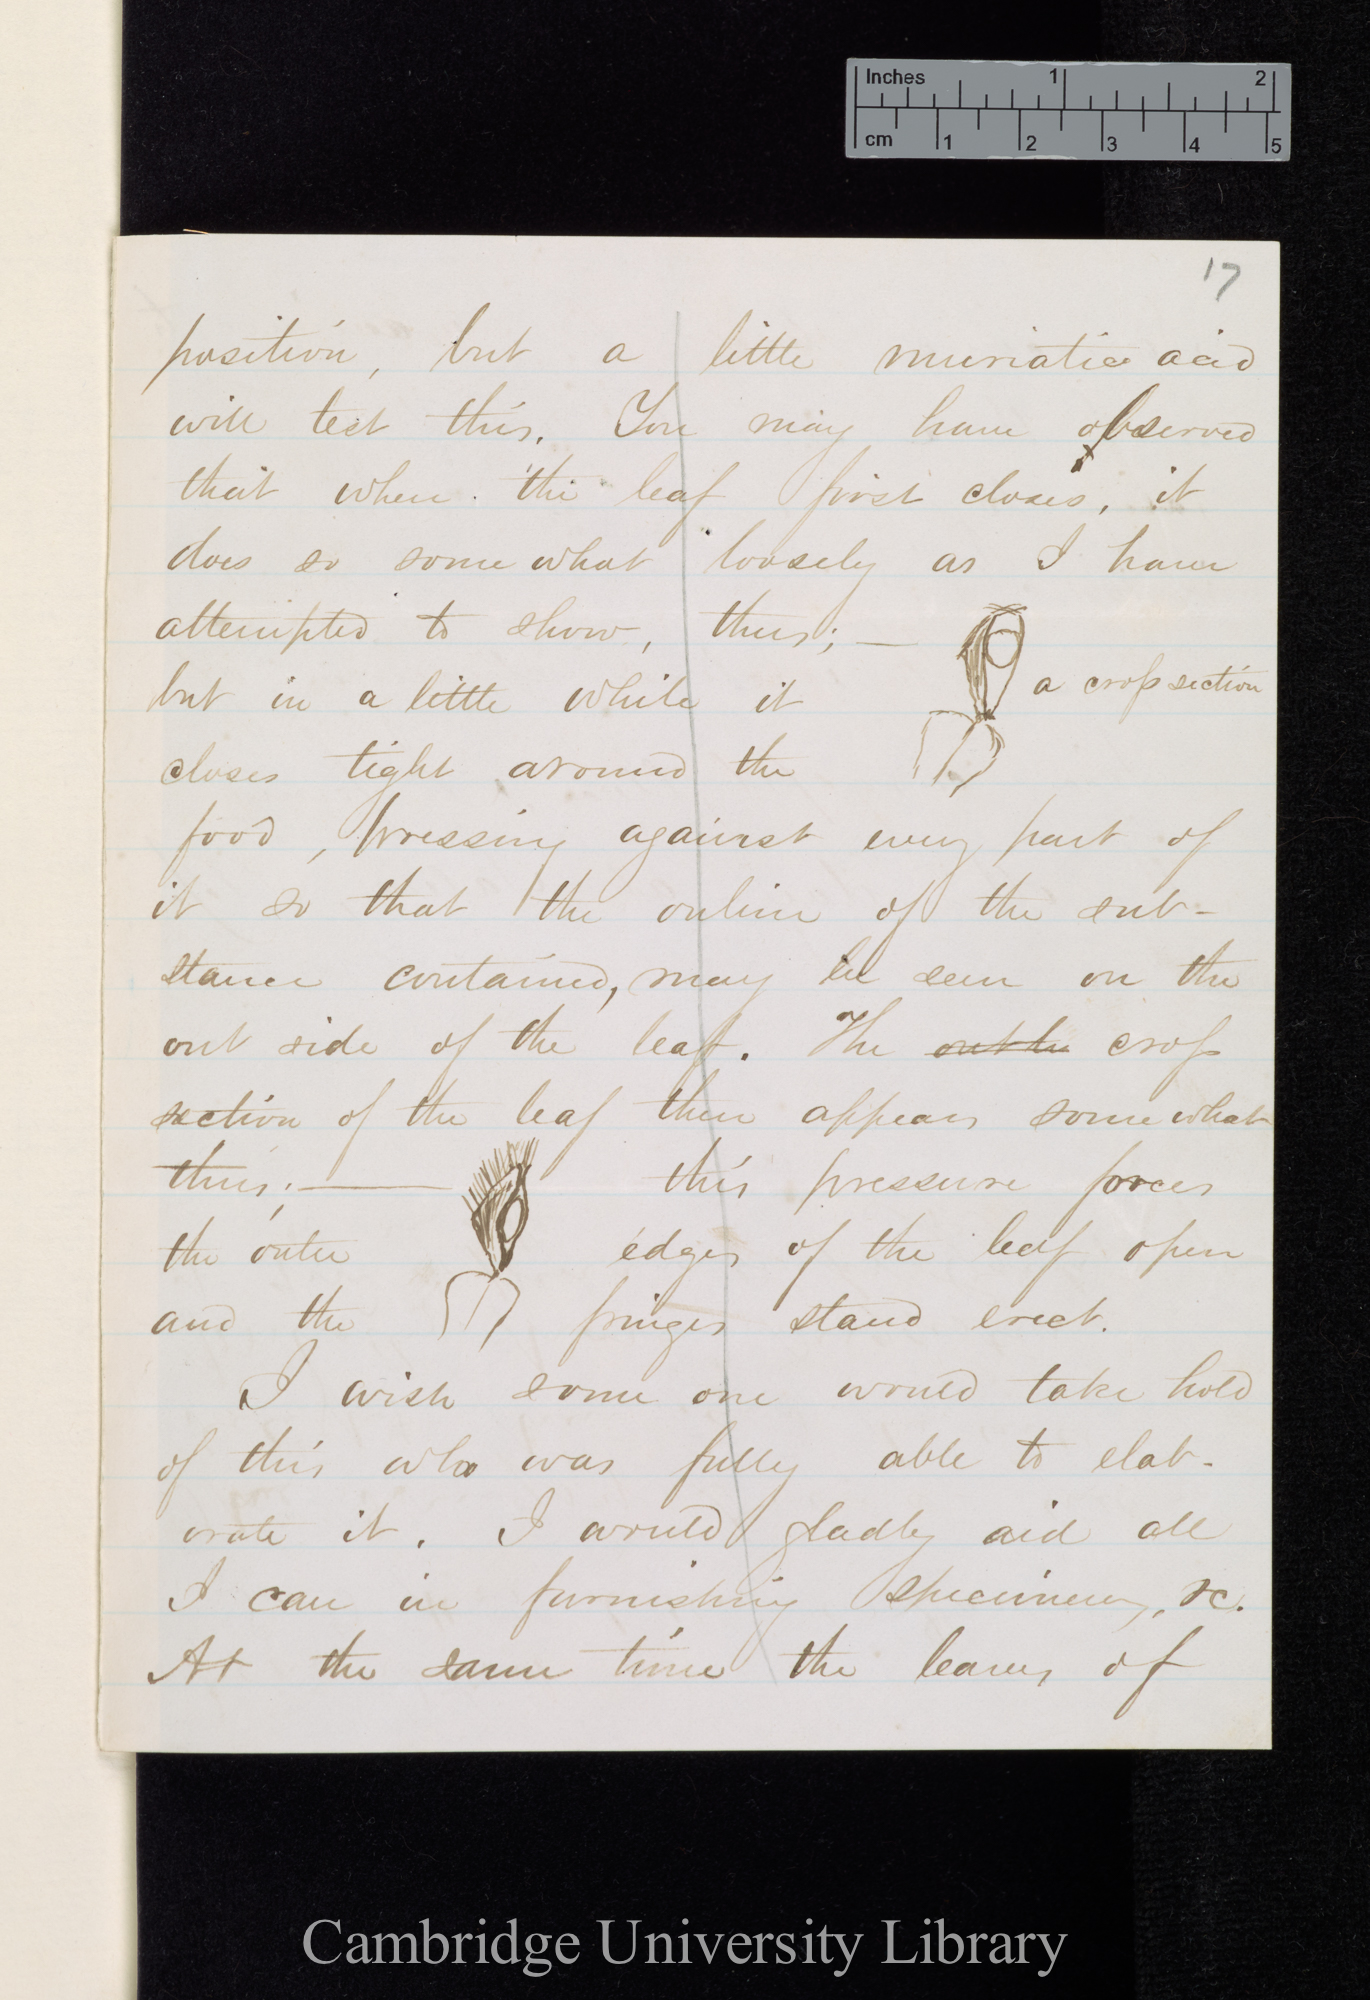 Inches 1 2
cm 1 2 3 4 5
17
position, but a little muriatic acid
will test this. You may have observed
that when the leaf first closes, it
does so somewhat loosely as I have
attempted to show, thus; —
a crop section
but in a little while it
closes tight around the
food, pressing against every part of
it so that the outline of the sub-
stance contained, may be seen on the
out side of the leaf. The crop
section of the leaf then appears somewhat
thus; —
this pressure forces
the outer edges of the leaf open
and the fringes stand erect.
I wish some one would take hold
of this who was fully able to elab-
orate it. I would gladly aid all
I can in furnishing specimens, &c.
At the same time the leaves of
Cambridge University Library